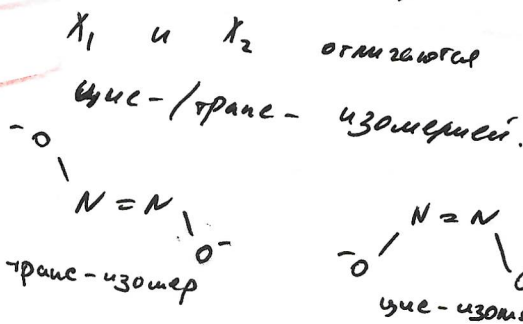 X₁ и X₂ отличаются
цис-/транс- изомерией.
⁻O
N = N
O⁻
транс-изомер
N = N
⁻O
цис-изом